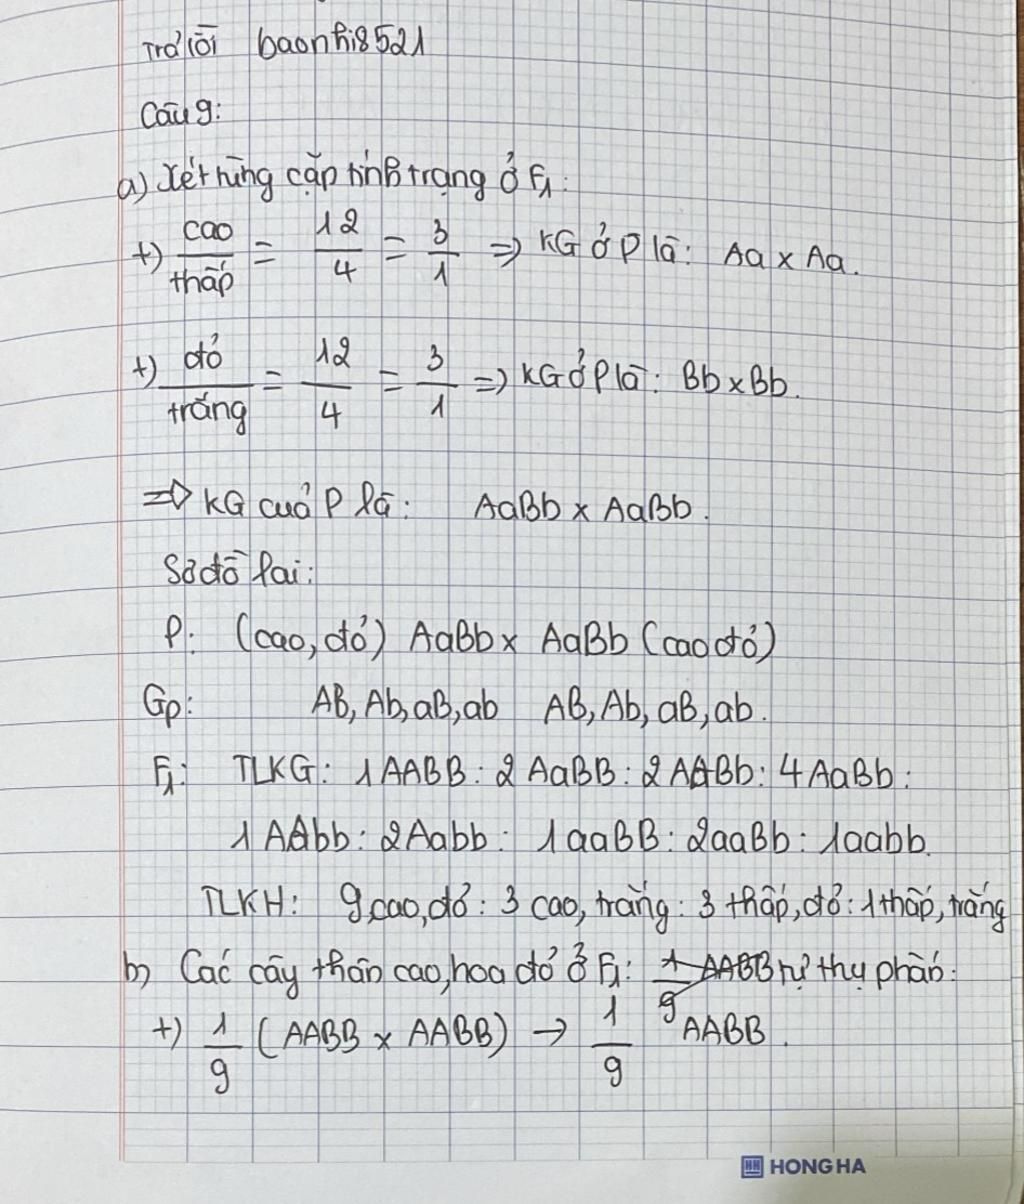 Trả lời baonhi8521
Câu 9:
a) Xét từng cặp tính trạng ở F1:
+) cao/thấp = 12/4 = 3/1 => KG ở P là: Aa x Aa.
+) đỏ/trắng = 12/4 = 3/1 => KG ở P là: Bb x Bb.
=> KG của P là: AaBb x AaBb.
Sơ đồ lai:
P: (cao, đỏ) AaBb x AaBb (cao đỏ)
Gp: AB, Ab, aB, ab AB, Ab, aB, ab.
F1: TLKG: 1AABB : 2 AaBB : 2 AABb : 4 AaBb :
1 AAbb : 2Aabb : 1 aaBB : 2aaBb : 1aabb.
TLKH: 9 cao, đỏ : 3 cao, trắng : 3 thấp, đỏ : 1 thấp, trắng
b) Các cây thân cao, hoa đỏ ở F1: 1/9 AABB tự thụ phấn:
+) 1/9 (AABB x AABB) → 1/9 AABB.
HONG HA